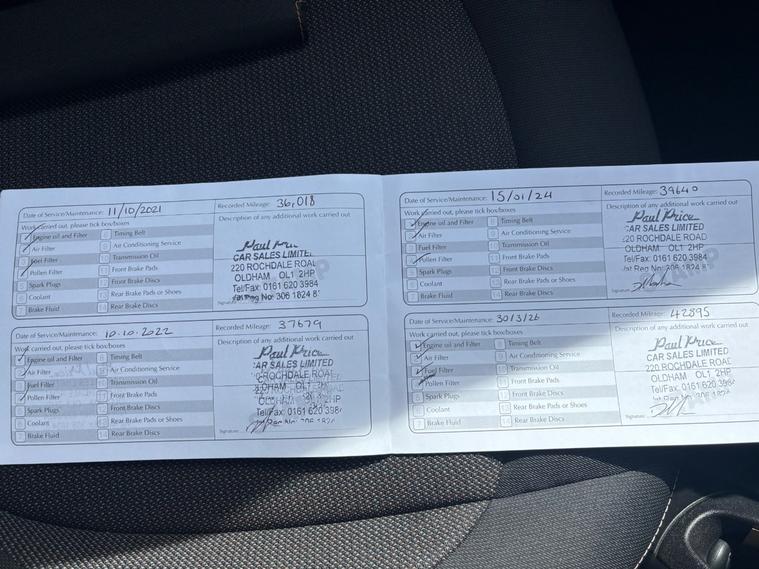 Date of Service/Maintenance: 11/10/2021
Recorded Mileage: 36,018
Work carried out, please tick box/boxes
Description of any additional work carried out
Engine oil and Filter
8 Timing Belt
Air Filter
9 Air Conditioning Service
Fuel Filter
10 Transmission Oil
Pollen Filter
11 Front Brake Pads
5 Spark Plugs
12 Front Brake Discs
6 Coolant
13 Rear Brake Pads or Shoes
7 Brake Fluid
14 Rear Brake Discs
Paul
CAR SALES LIMITE
220 ROCHDALE ROAD
OLDHAM OL1 2HP
Tel/Fax: 0161 620 3984
Reg No: 306 1824 8
Date of Service/Maintenance: 10.10.2022
Recorded Mileage: 37679
Work carried out, please tick box/boxes
Description of any additional work carried out
Engine oil and Filter
8 Timing Belt
Air Filter
9 Air Conditioning Service
3 Fuel Filter
10 Transmission Oil
Pollen Filter
11 Front Brake Pads
5 Spark Plugs
12 Front Brake Discs
6 Coolant
13 Rear Brake Pads or Shoes
7 Brake Fluid
14 Rear Brake Discs
Paul Price
CAR SALES LIMITED
ROCHDALE ROAD
OLDHAM OL1 2HP
Tel/Fax: 0161 620 398
Reg No: 306 1824
Signature:
Date of Service/Maintenance: 15/01/24
Recorded Mileage: 39640
Work carried out, please tick box/boxes
Description of any additional work carried out
Engine oil and Filter
8 Timing Belt
Air Filter
9 Air Conditioning Service
3 Fuel Filter
10 Transmission Oil
Pollen Filter
11 Front Brake Pads
5 Spark Plugs
12 Front Brake Discs
6 Coolant
13 Rear Brake Pads or Shoes
7 Brake Fluid
14 Rear Brake Discs
Paul Price
CAR SALES LIMITED
220 ROCHDALE ROAD
OLDHAM OL1 2HP
Tel/Fax: 0161 620 3984
Reg No: 306 1824 8
Signature:
Date of Service/Maintenance: 3013/26
Recorded Mileage: 42895
Work carried out, please tick box/boxes
Description of any additional work carried out
Engine oil and Filter
8 Timing Belt
Air Filter
9 Air Conditioning Service
Fuel Filter
10 Transmission Oil
Pollen Filter
11 Front Brake Pads
5 Spark Plugs
12 Front Brake Discs
6 Coolant
13 Rear Brake Pads or Shoes
7 Brake Fluid
14 Rear Brake Discs
Paul Price
CAR SALES LIMITED
220 ROCHDALE ROAD
OLDHAM OL1 2HP
Tel/Fax: 0161 620 398
Reg No: 306 182
Signature: